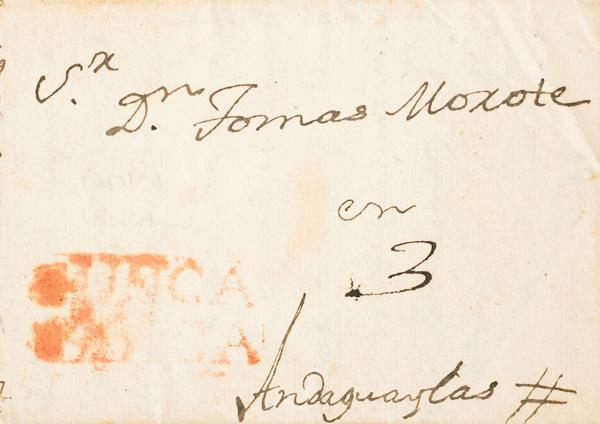 S.r
D.n Tomas Moxote
en
3
Andaguaylas #